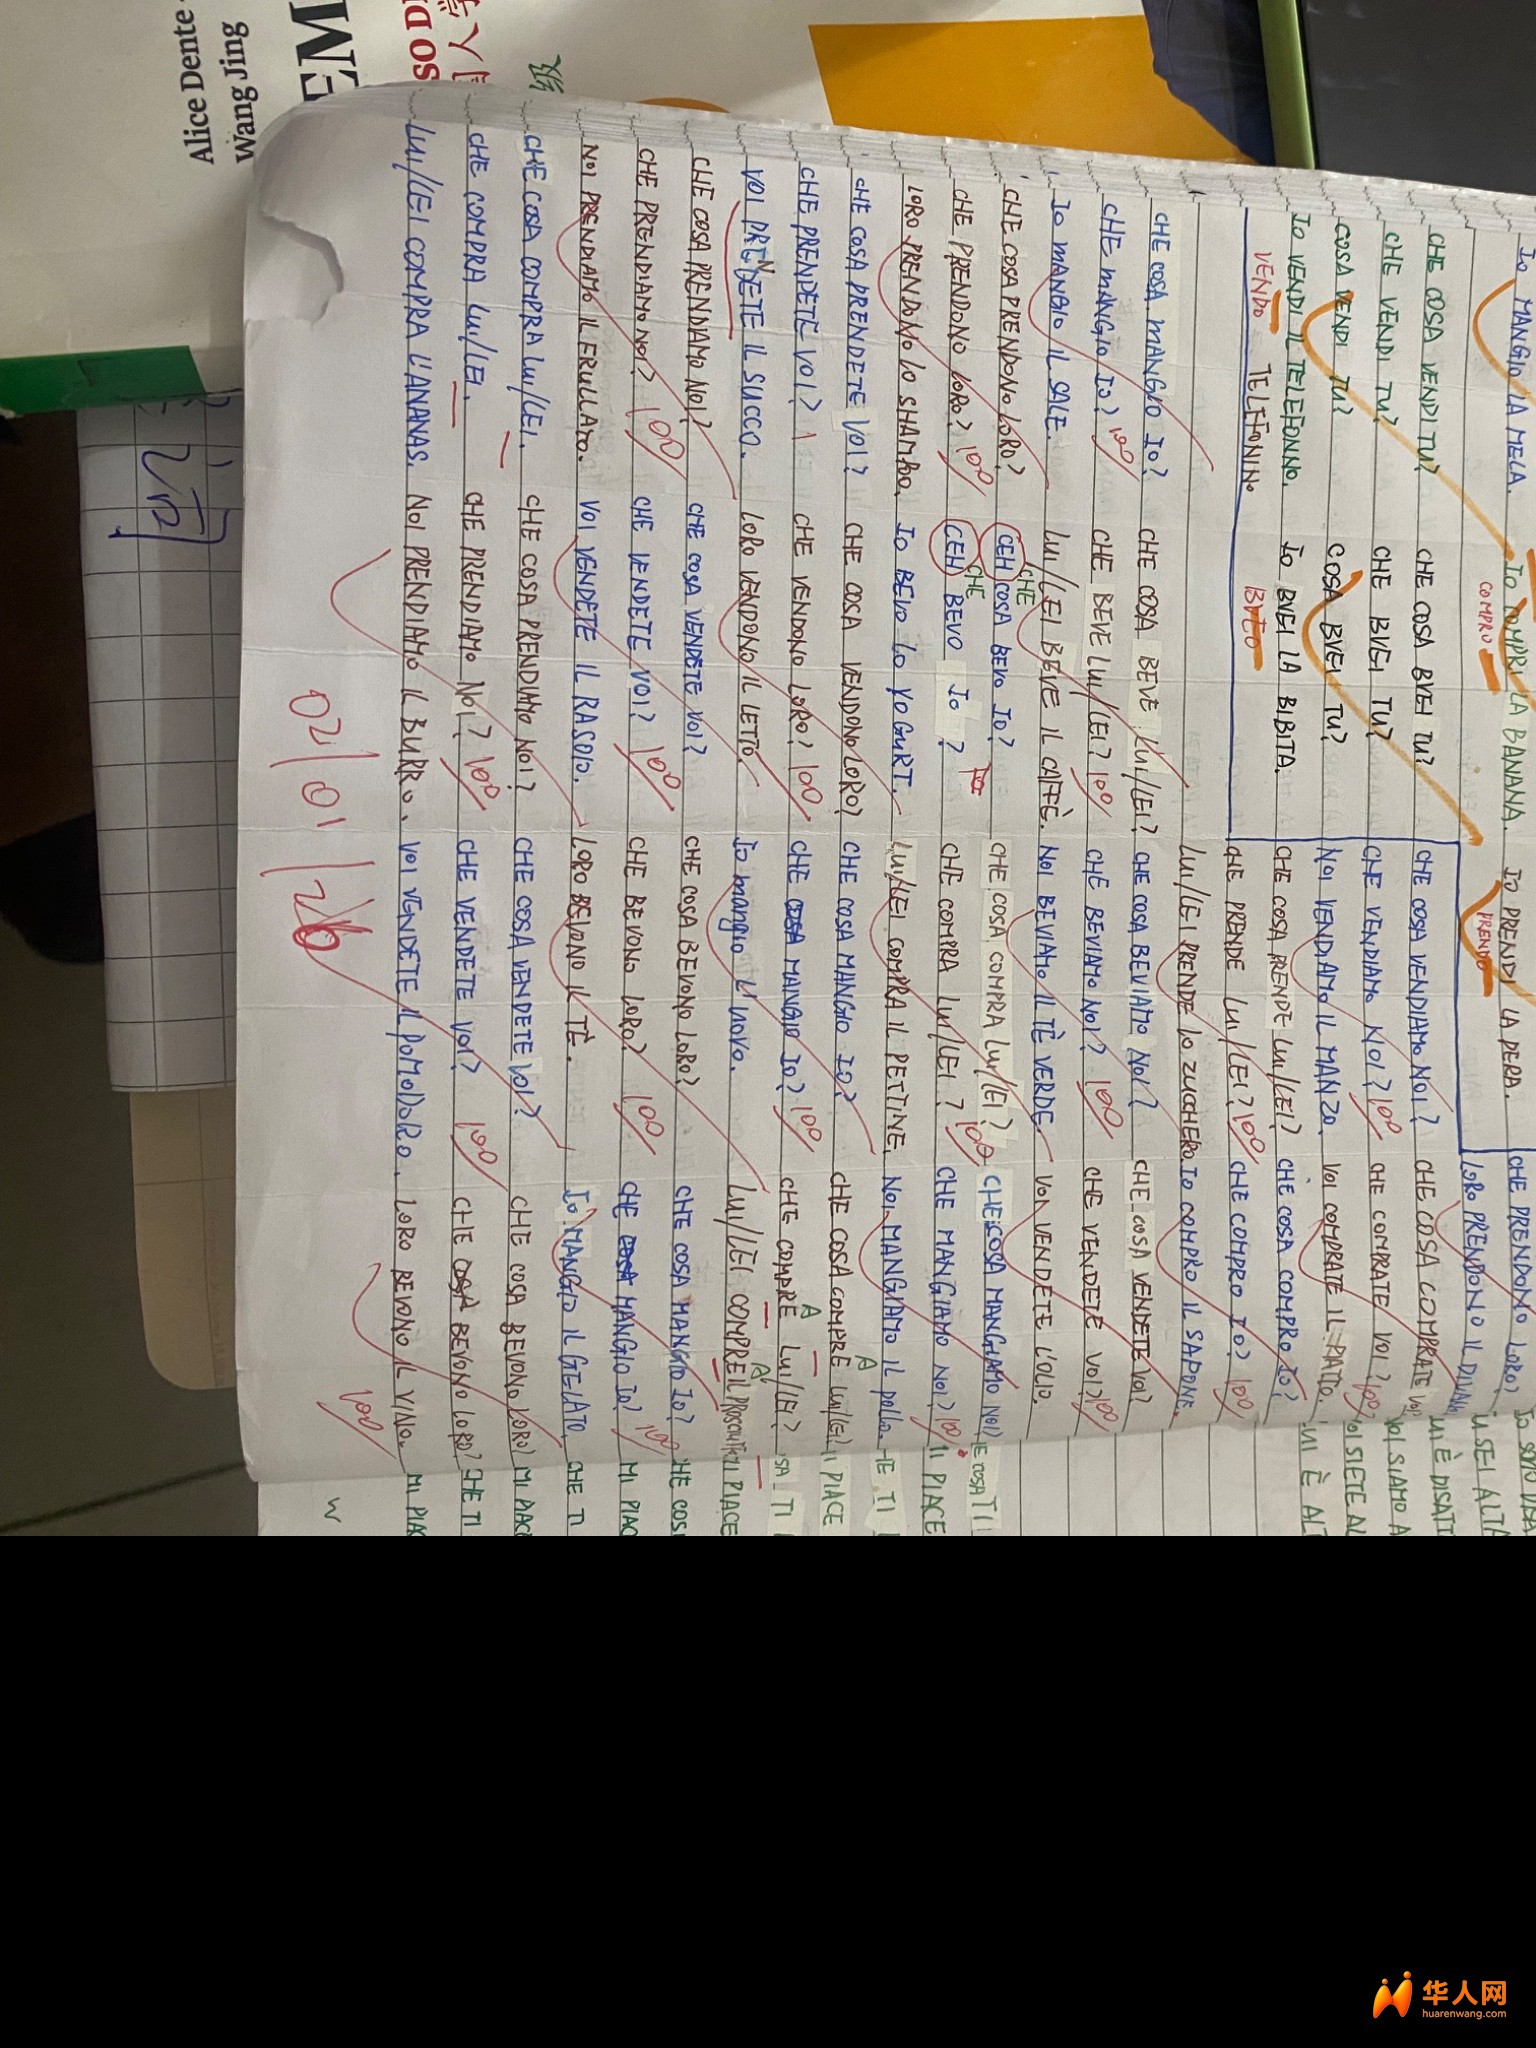 Alice Dente
Wang Jing
Io MANGIO LA MELA. Io COMPRI LA BANANA. Io PRENDI LA PERA. CHE PRENDONO LORO?
COMPRO PRENDO LORO PRENDONO IL
CHE COSA VENDI TU? CHE COSA BVEI TU? CHE COSA VENDIAMO NOI? CHE COSA COMPRATE VOI
CHE VENDI TU? CHE BVEI TU? CHE VENDIAMO NOI? 100 CHE COMPRATE VOI? 100
COSA VENDI TU? COSA BVEI TU? NOI VENDIAMO IL MANZO. VOI COMPRATE IL PIATTO.
Io VENDI IL TELEFONNO. Io BVEI LA BIBITA. CHE COSA PRENDE LUI/LEI? CHE COSA COMPRO IO?
VENDO TELEFONINO BVEO CHE PRENDE LUI/LEI? 100 CHE COMPRO IO? 100
LUI/LEI PRENDE LO ZUCCHERO. Io COMPRO IL SAPONE.
CHE COSA MANGIO IO? CHE COSA BEVE LUI/LEI? CHE COSA BEVIAMO NOI? CHE COSA VENDETE VOI?
CHE MANGIO IO? 100 CHE BEVE LUI/LEI? 100 CHE BEVIAMO NOI? 100 CHE VENDETE VOI? 100
Io MANGIO IL SALE. LUI/LEI BEVE IL CAFFÈ. NOI BEVIAMO IL TÈ VERDE. VOI VENDETE L'OLIO.
CHE COSA PRENDONO LORO? CEH CHE COSA BEVO IO? CHE COSA COMPRA LUI/LEI? CHE COSA MANGIAMO NOI?
CHE PRENDONO LORO? 100 CEH CHE BEVO IO? CHE COMPRA LUI/LEI? 100 CHE MANGIAMO NOI? 100
LORO PRENDONO LO SHAMPOO. Io BEVO LO YOGURT. LUI/LEI COMPRA IL PETTINE. NOI MANGIAMO IL pollo.
CHE COSA PRENDETE VOI? CHE COSA VENDONO LORO? CHE COSA MANGIO IO? CHE COSA COMPRE A LUI/LEI?
CHE PRENDETE VOI? CHE VENDONO LORO? 100 CHE COSA MANGIO IO? 100 CHE COMPRE A LUI/LEI?
VOI PRENDETE IL SUCCO. LORO VENDONO IL LETTO. Io mangio L'uovo. LUI/LEI COMPRE A IL
CHE COSA PRENDIAMO NOI? CHE COSA VENDETE VOI? CHE COSA BEVONO LORO? CHE COSA MANGIO IO?
CHE PRENDIAMO NOI? 100 CHE VENDETE VOI? 100 CHE BEVONO LORO? 100 CHE COSA MANGIO IO? 100
NOI PRENDIAMO IL FRULLATO. VOI VENDETE IL RASOIO. LORO BEVONO IL TÈ. Io MANGIO IL GELATO.
CHE COSA COMPRA LUI/LEI. CHE COSA PRENDIAMO NOI? CHE COSA VENDETE VOI? CHE COSA BEVONO LORO?
CHE COMPRA LUI/LEI. CHE PRENDIAMO NOI? 100 CHE VENDETE VOI? 100 CHE COSA BEVONO LORO?
LUI/LEI COMPRA L'ANANAS. NOI PRENDIAMO IL BURRO. VOI VENDETE IL POMODORO. LORO BEVONO IL VINO.
100
02/01/26
华人网
huarenwang.com